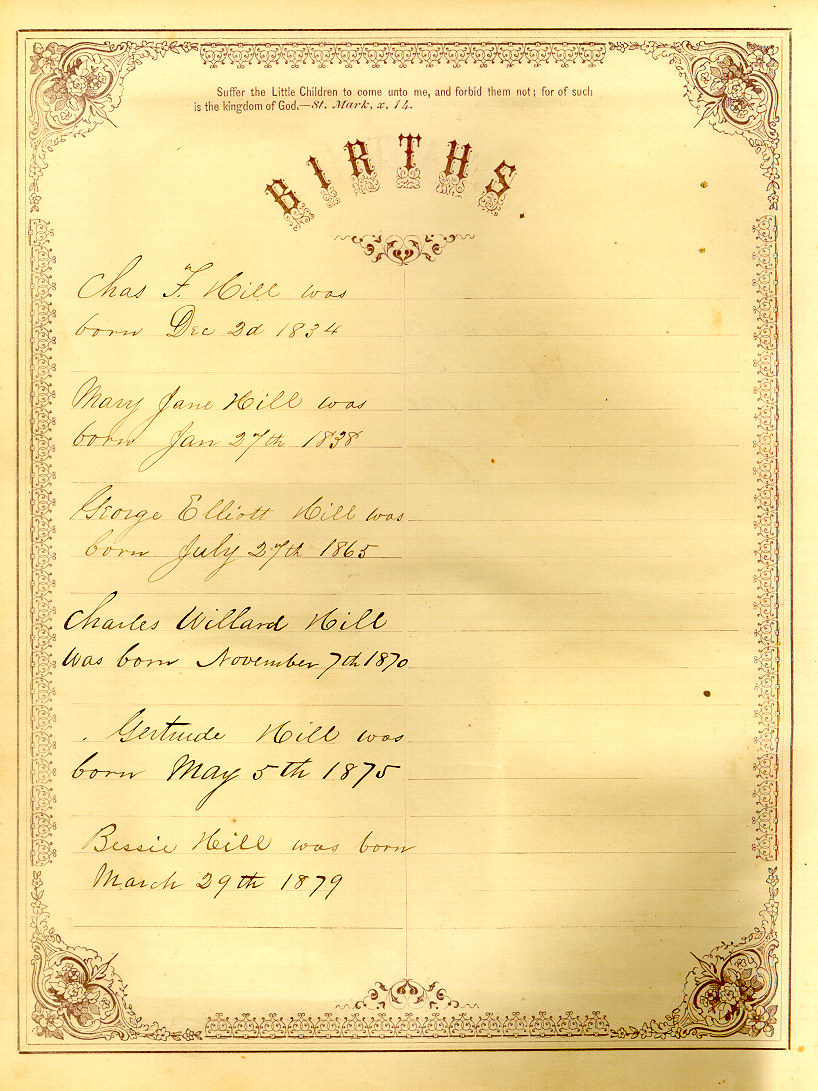 Suffer the Little Children to come unto me, and forbid them not; for of such
is the kingdom of God.—St. Mark, x, 14.
BIRTHS.
Chas F. Hill was
born Dec 2d 1834
Mary Jane Hill was
born Jan 27th 1838
George Elliott Hill was
born July 27th 1865
Charles Willard Hill
was born November 7th 1870
Gertrude Hill was
born May 5th 1875
Bessie Hill was born
March 29th 1879